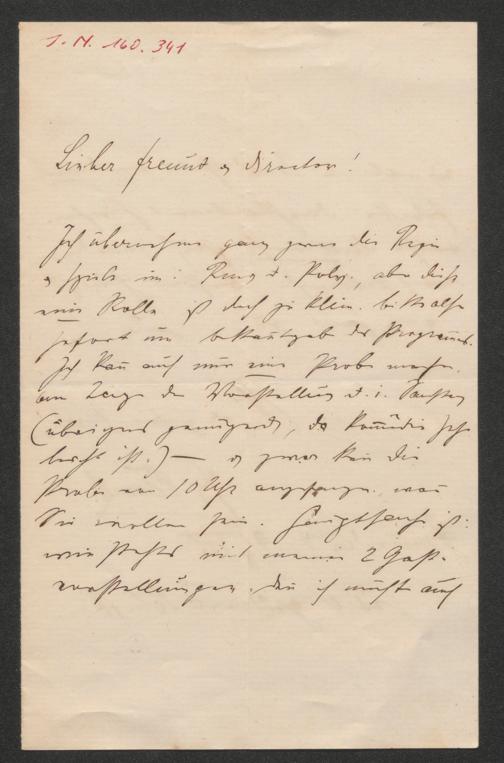 J. N. 160.341
Lieber Freund u Director!
Ich übernehme ganz gerne die Regie
u spiele im: Ring d. Polyk., aber diese
eine Rolle ist doch zu klein. bitte also
sofort um bekanntgabe des Programms.
Ich kan auch nur eine Probe machen.
am Tage der Vorstellung d. i. Samstag
(übrigens genügend, da Komödie sehr
leicht ist.) — u zwar kan die
Probe um 10 Uhr anfangen. wan
Sie wollen. Hauptsache ist:
wie stehts mit meinen 2 Gast-
vorstellungen. den ich muß auch